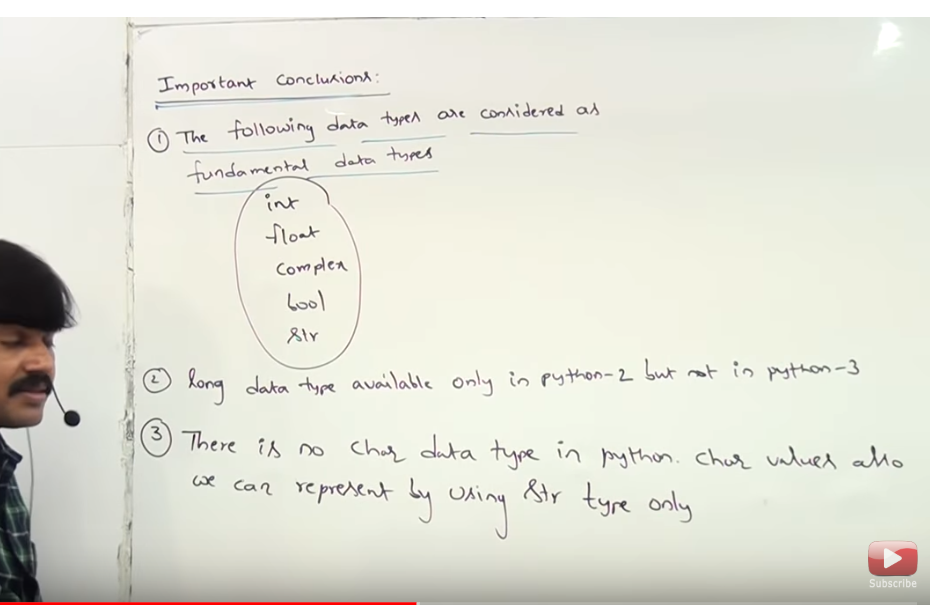 Important Conclusions:
① The following data types are considered as
fundamental data types
int
float
complex
bool
str
② long data type available only in python-2 but not in python-3
③ There is no char data type in python. char values also
we can represent by using str type only
Subscribe